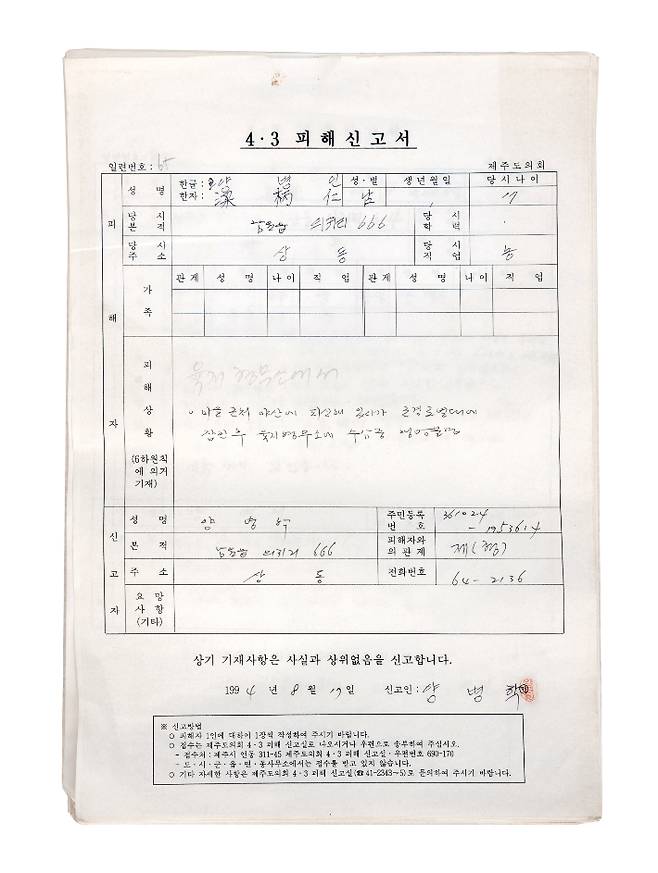 4·3 피해신고서
일련번호 : 65
제주도의회
피해자
성 명
한글 : 양 병 인
한자 : 梁 柄 仁
성·별
남
생년월일
당시나이
17
당시본적
남원읍 의귀리 666
당시학력
당시주소
상 동
당시직업
농
가족
관계 성 명 나이 직 업 관계 성 명 나이 직 업
피해상황
(6하원칙에 의거 기재)
육지 형무소에서
마을 근처 야산에 피신해 있다가 군경토벌대에
잡힌후 육지형무소에 수감중 행방불명
신고자
성 명
양 병
주민등록번호
361024
본 적
남원읍 의귀리 666
피해자와의 관계
제(형)
주 소
상 동
전화번호
64-2136
요망사항(기타)
상기 기재사항은 사실과 상위없음을 신고합니다.
1994 년 8 월 19 일 신고인 : 양 병
※ 신고방법
○ 피해자 1인에 대하여 1장씩 작성하여 주시기 바랍니다.
○ 접수는 제주도의회 4·3 피해 신고실로 나오시거나 우편으로 송부하여 주십시오.
- 접수처 : 제주시 연동 311-45 제주도의회 4·3 피해 신고실·우편번호 690-170
- 도·시·군·읍·면·동사무소에서는 접수를 받고 있지 않습니다.
○ 기타 자세한 사항은 제주도의회 4·3 피해 신고실(☎ 41-2343~5)로 문의하여 주시기 바랍니다.